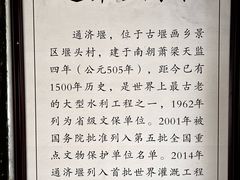 通济堰，位于古堰画乡景
区堰头村，建于南朝萧梁天监
四年（公元505年），距今已有
1500年历史，是世界上最古老
的大型水利工程之一，1962年
列为省级文保单位。2001年被
国务院批准列入第五批全国重
点文物保护单位名单。2014年
通济堰列入首批世界灌溉工程